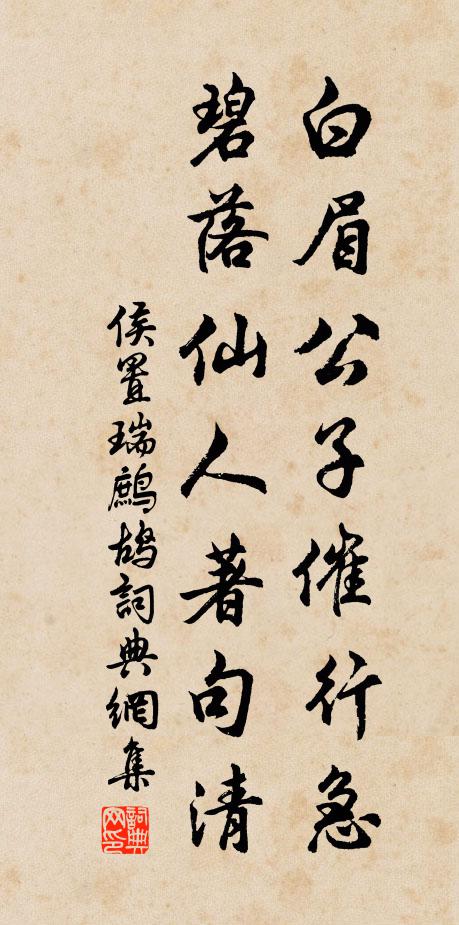 白眉公子催行急
碧落仙人著句清
侯置瑞鷓鴣詞典網集
詞典網印